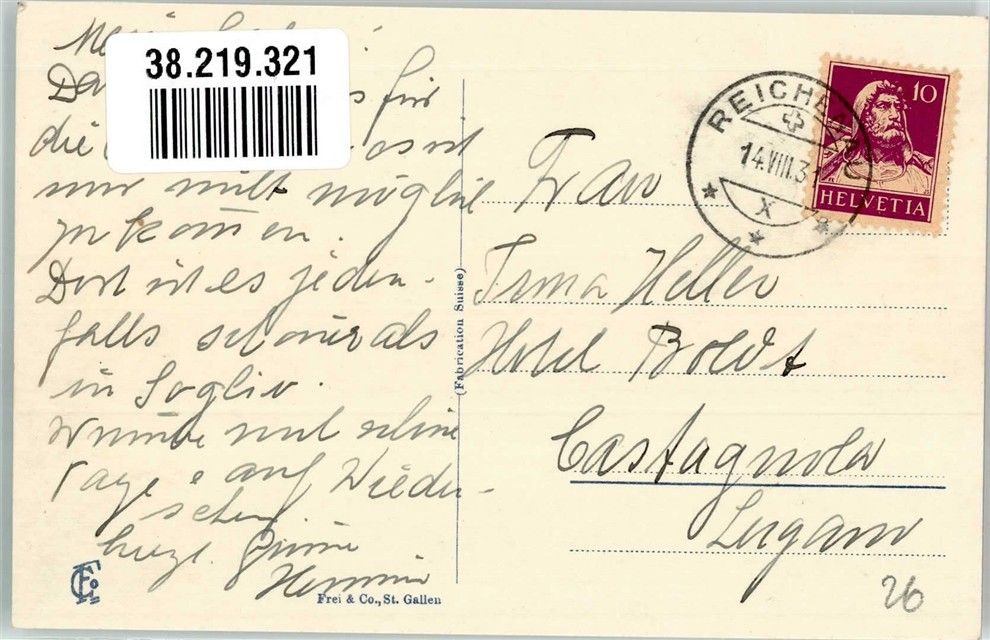 38.219.321
für
die
mir nicht möglich
zu kommen.
Dort ist es jeden-
falls schöner als
in Soglio.
Wünsche noch schöne
Tage & auf Wieder-
sehen
herzl. Grüsse
(Fabrication Suisse)
Frei & Co., St. Gallen
REICHENAU
14.VIII.3
X
10
HELVETIA
Frau
Irma Heller
Hotel Boldt
Castagnola
Lugano
26